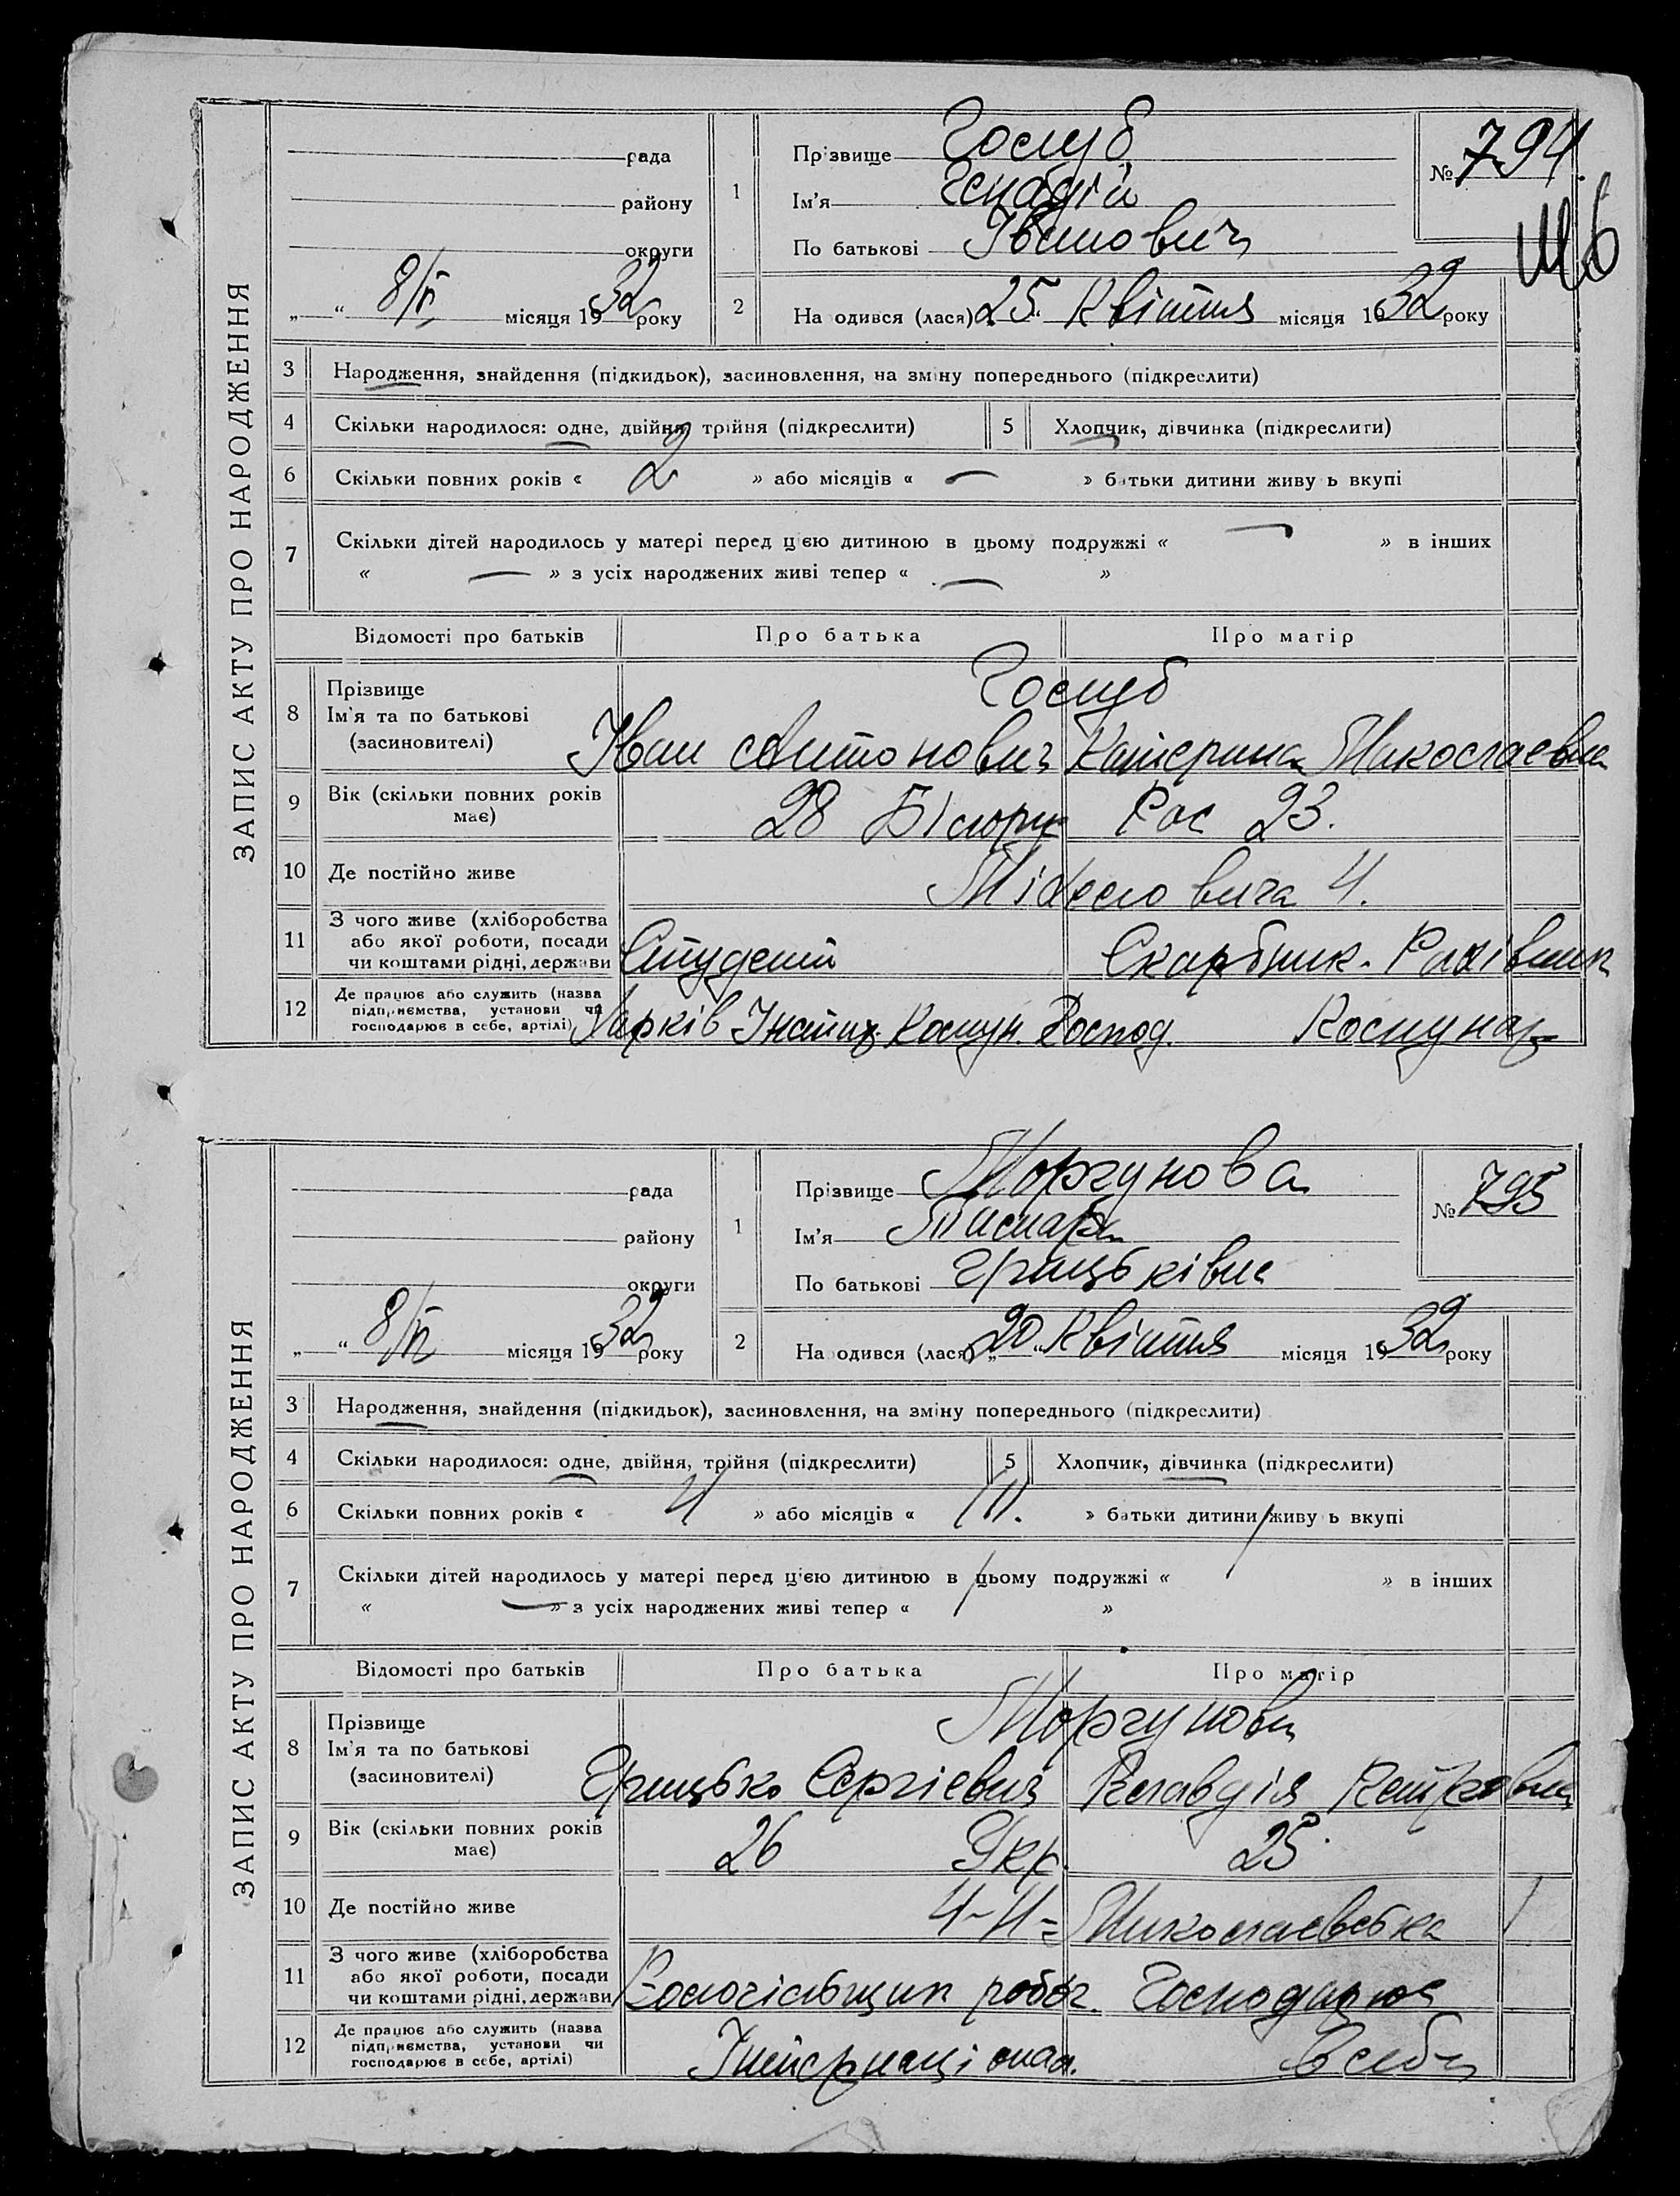 ЗАПИС АКТУ ПРО НАРОДЖЕННЯ
рада
району
округи
„ “ 8/VI місяця 1932 року
1
Прізвище Голуб
Ім'я Генадій
По батькові Іванович
№ 794.
2
На одився (лася) „25“ Квітня місяця 1932 року
3 Народження, знайдення (підкидьок), засиновлення, на зміну попереднього (підкреслити)
4 Скільки народилося: одне, двійня, трійня (підкреслити)
5 Хлопчик, дівчинка (підкреслити)
6 Скільки повних років « 2 » або місяців « — » батьки дитини живу ь вкупі
7 Скільки дітей народилось у матері перед цією дитиною в цьому подружжі « — » в інших
« — » з усіх народжених живі тепер « — »
Відомості про батьків Про батька Про матір
8 Прізвище
Ім'я та по батькові
(засиновителі)
Голуб
Іван Антонович Катерина Миколаевна
9 Вік (скільки повних років має)
28 Білорус Рос 23.
10 Де постійно живе
4.
11 З чого живе (хліборобства
або якої роботи, посади
чи коштами рідні, держави
Студент Скарбник-Рахівник
12 Де працює або служить (назва
підприємства, установи чи
господарює в себе, артілі)
Харків Інстит. Комун. Господ. Комунар
ЗАПИС АКТУ ПРО НАРОДЖЕННЯ
рада
району
округи
„ “ 8/VI місяця 1932 року
1
Прізвище Моргунова
Ім'я Тамара
По батькові Грицьківна
№ 795
2
На одився (лася) „20“ Квітня місяця 1932 року
3 Народження, знайдення (підкидьок), засиновлення, на зміну попереднього (підкреслити)
4 Скільки народилося: одне, двійня, трійня (підкреслити)
5 Хлопчик, дівчинка (підкреслити)
6 Скільки повних років « 4 » або місяців « » батьки дитини живу ь вкупі
7 Скільки дітей народилось у матері перед цією дитиною в цьому подружжі « / » в інших
« — » з усіх народжених живі тепер « / »
Відомості про батьків Про батька Про матір
8 Прізвище
Ім'я та по батькові
(засиновителі)
Моргунови
Грицько Сергієвич Клавдія Петровна
9 Вік (скільки повних років має)
26 Укр. 25
10 Де постійно живе
Миколаевська
11 З чого живе (хліборобства
або якої роботи, посади
чи коштами рідні, держави
робоч. Господарює
12 Де працює або служить (назва
підприємства, установи чи
господарює в себе, артілі)
Інтернаціонал. В себе